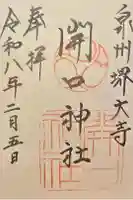 泉州堺大寺
開口神社
奉拝
令和八年二月五日